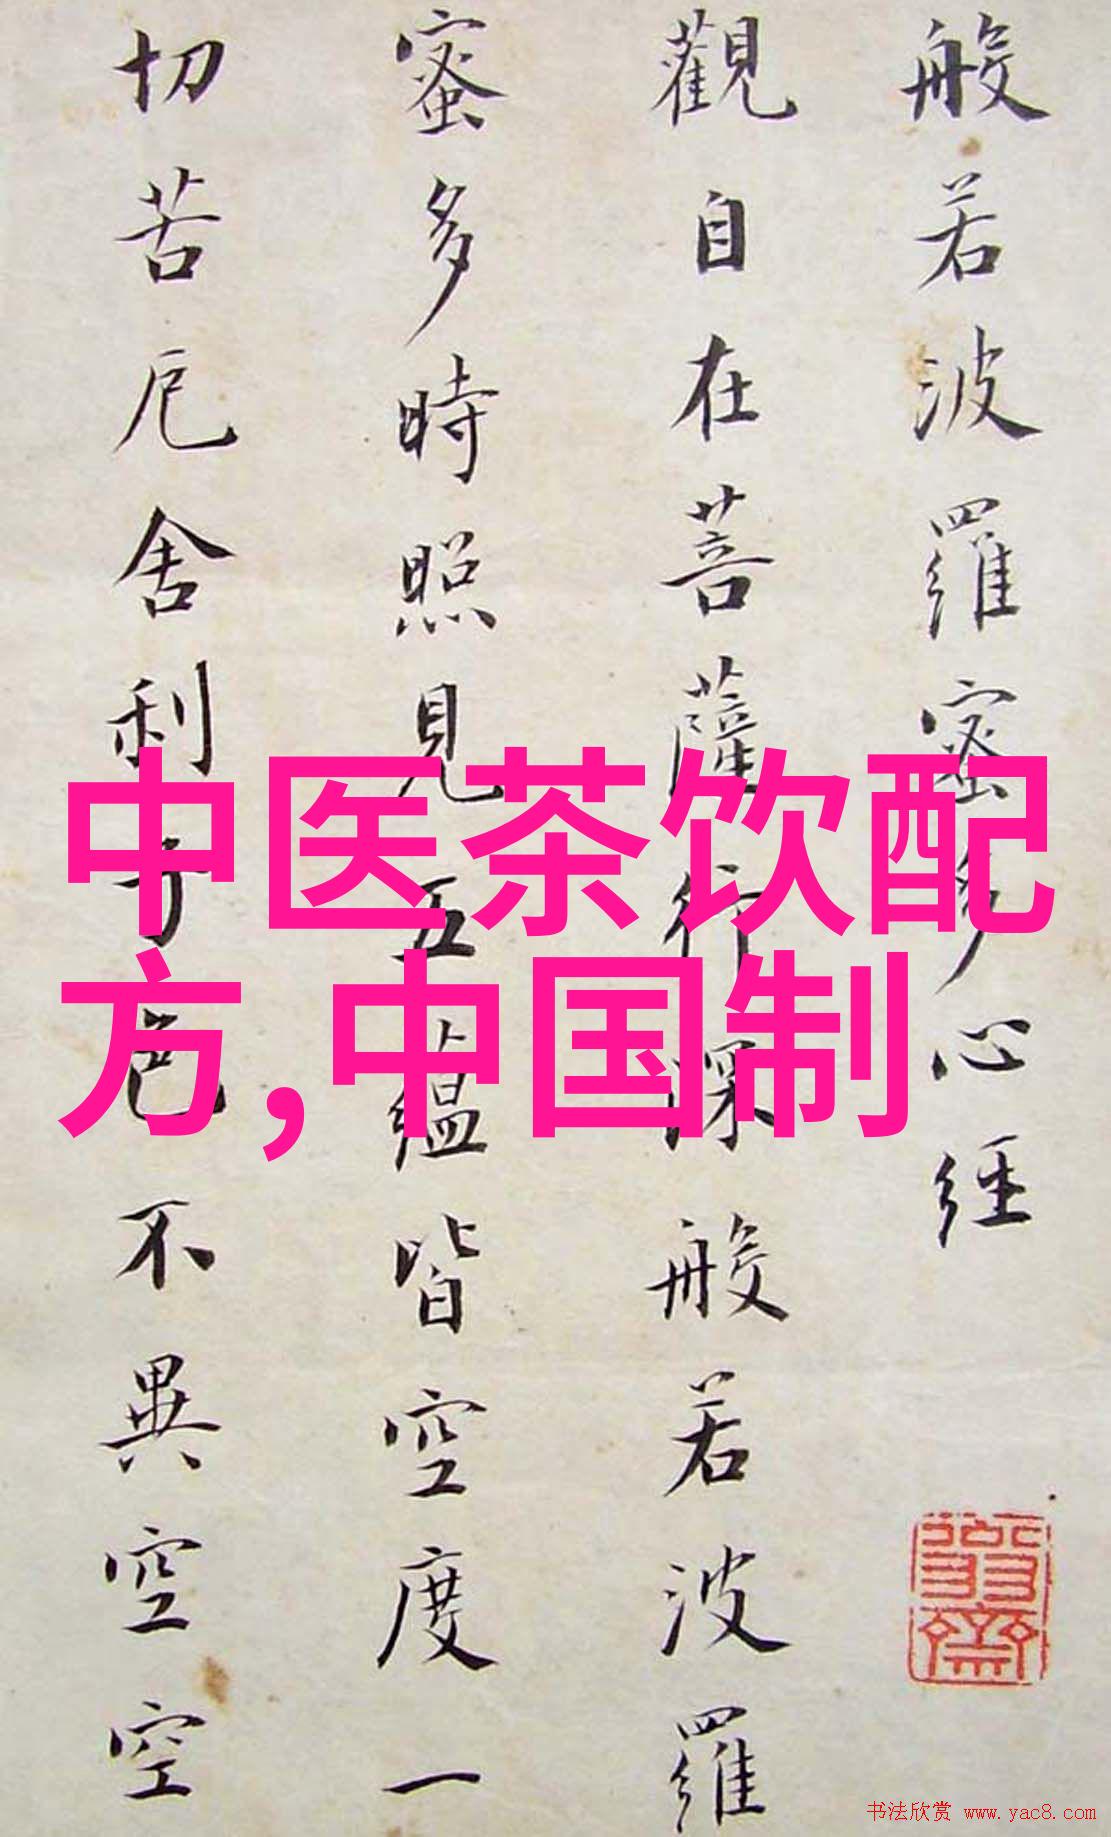 般若波羅蜜多心經
觀自在菩薩行深般若波羅
蜜多時照見五蘊皆空度一
切苦厄舍利子色不異空空
中医茶饮配
方,中国制
书法欣赏 www.yac8.com